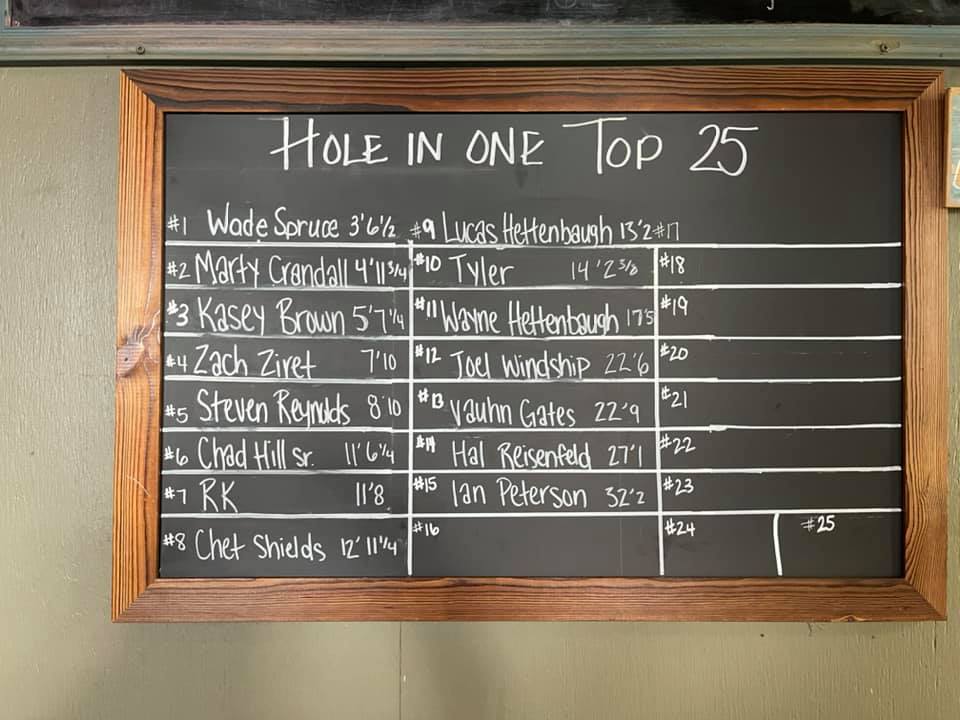 HOLE IN ONE TOP 25
#1 Wade Spruce 3'6 1/2
#2 Marty Crandall 4'11 3/4
#3 Kasey Brown 5'7 1/4
#4 Zach Ziret 7'10
#5 Steven Reynolds 8'10
#6 Chad Hill sr. 11'6 1/4
#7 RK 11'8
#8 Chet Shields 12'11 1/4
#9 Lucas Hettenbaugh 13'2
#10 Tyler 14'2 3/8
#11 Wayne Hettenbaugh 17'5
#12 Joel Windship 22'6
#13 Vauhn Gates 22'9
#14 Hal Reisenfeld 27'1
#15 Ian Peterson 32'2
#16
#17
#18
#19
#20
#21
#22
#23
#24
#25